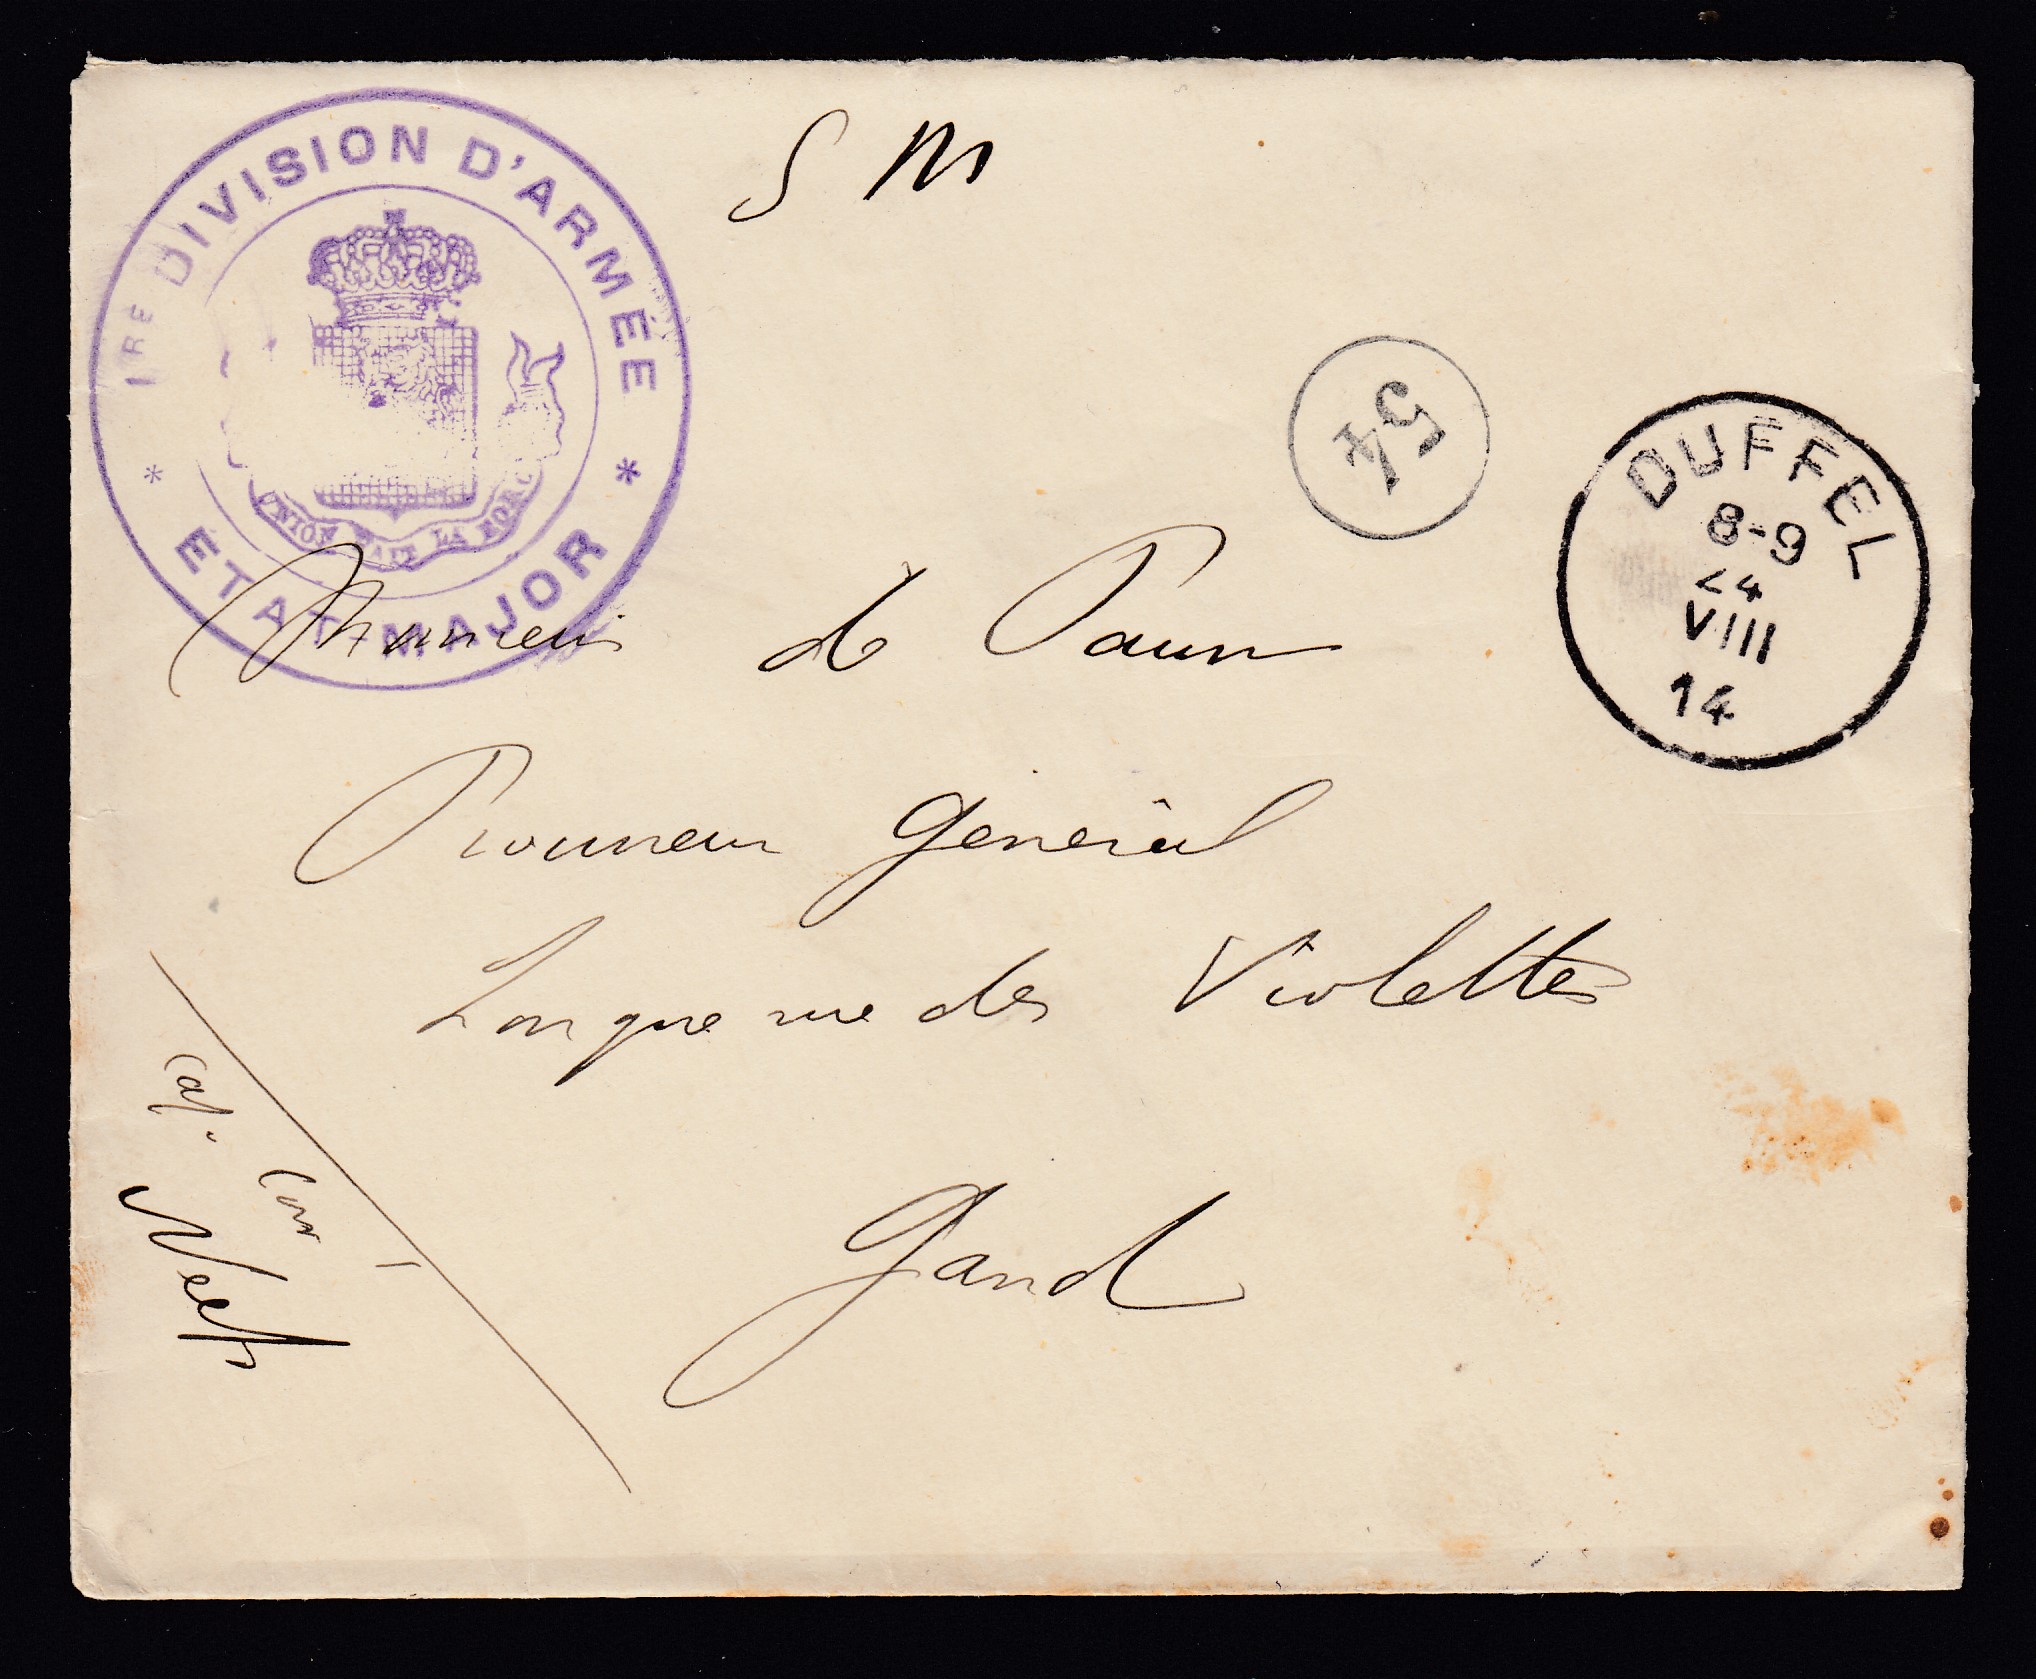 1RE DIVISION D'ARMÉE
* ETAT-MAJOR *
UNION FAIT LA FORC
S M
54
DUFFEL
8-9
24
VIII
14
Monsieur de Paun
Procureur général
Longue rue des Violettes
Gand